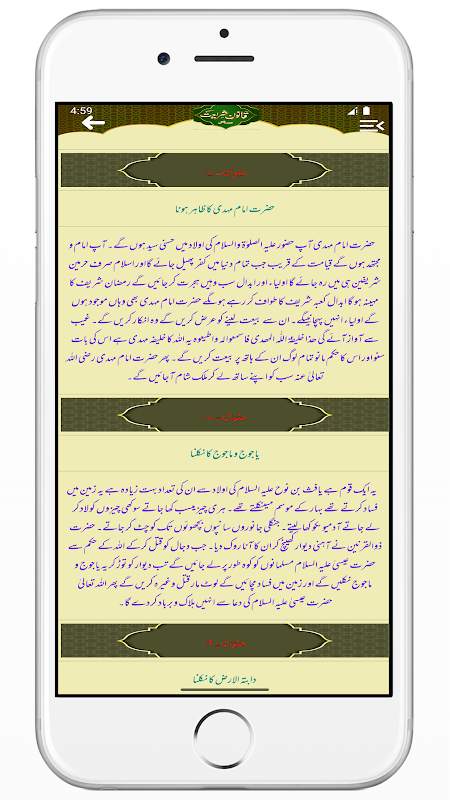 4:59
قانون شریعت
حضرت امام مہدی کا ظاہر ہونا
حضرت امام مہدی آپ حضور علیہ الصلوٰۃ والسلام کی اولاد میں حسنی سید ہوں گے۔ آپ امام و
مجتہد ہوں گے قیامت کے قریب جب تمام دنیا میں کفر پھیل جائے گا اور اسلام صرف حرمین
شریفین ہی میں رہ جائے گا اولیاء اور ابدال سب وہیں ہجرت کر جائیں گے رمضان شریف کا
مہینہ ہو گا ابدال کعبہ شریف کا طواف کر رہے ہونگے حضرت امام مہدی بھی وہاں موجود ہوں
گے اولیاء انہیں پہچانیںگے۔ ان سے بیعت لینے کو عرض کریں گے وہ انکار کریں گے۔ غیب
سے آواز آئے گی ھذا خلیفۃ اللہ المھدی فاسمعوا لہ واطیعوہ یہ اللہ کا خلیفہ مہدی ہے اس کی بات
سنو اور اس کا حکم مانو تمام لوگ ان کے ہاتھ پر بیعت کریں گے۔ پھر حضرت امام مہدی رضی اللہ
تعالیٰ عنہ سب کو اپنے ساتھ لے کر ملک شام آ جائیں گے۔
یاجوج و ماجوج کا نکلنا
یہ ایک قوم ہے یافث بن نوح علیہ السلام کی اولاد سے ان کی تعداد بہت زیادہ ہے یہ زمین میں
فساد کرتے تھے بہار کے موسم میںنکلتے تھے۔ ہری چیزیںسب کھا جاتے سوکھی چیزوں کو لاد کر
لے جاتے آدمیو نکو کھا لیتے۔ جنگلی جانوروں سانپوں بچھوئوں تک کو چٹ کر جاتے۔ حضرت
ذوالقرنین نے آہنی دیوار کھینچ کر ان کا آنا روک دیا۔ جب دجال کو قتل کر کے اللہ کے حکم سے
حضرت عیسیٰ علیہ السلام مسلمانوں کو کوہ طور پر لے جائیں گے تب دیوار کو توڑ کر یہ یاجوج و
ماجوج نکلیں گے اور زمین میں فساد مچائیں گے لوٹ مار قتل وغیرہ کریں گے پھر اللہ تعالیٰ
حضرت عیسیٰ علیہ السلام کی دعا سے انہیں ہلاک و برباد کردے گا۔
دابتہ الارض کا نکلنا